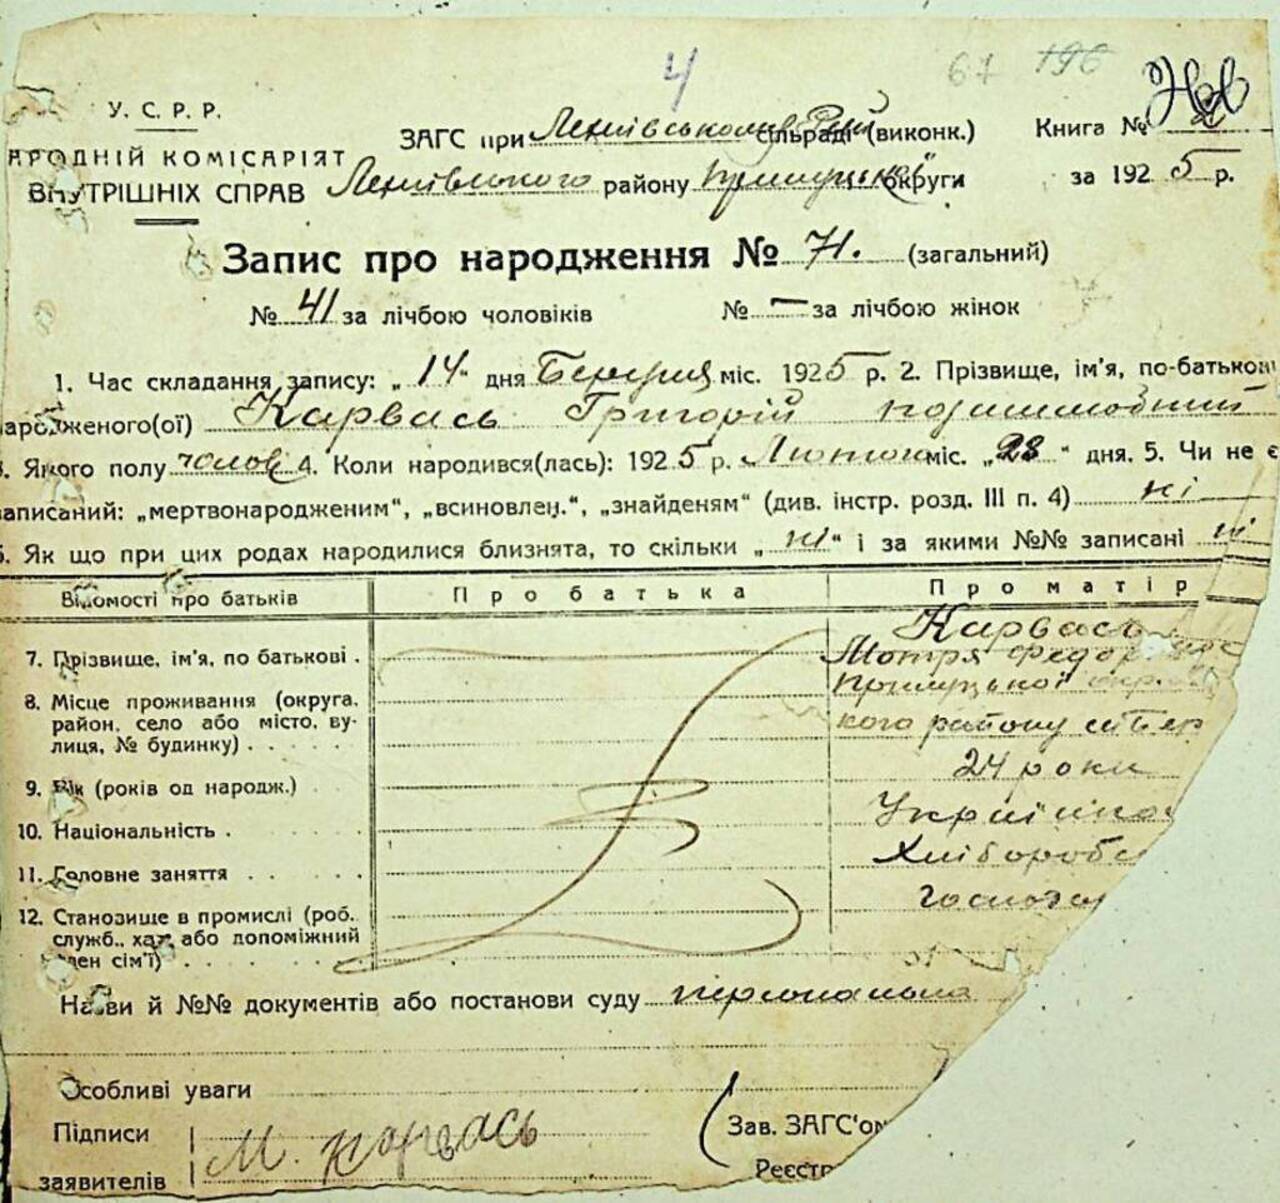 4 67 196
У. С. Р. Р.
ЗАГС при сільраді (виконк.) Книга №
АРОДНІЙ КОМІСАРІЯТ
ВНУТРІШНІХ СПРАВ району округи за 1925 р.
Запис про народження № 71. (загальний)
№ 41 за лічбою чоловіків № — за лічбою жінок
1. Час складання запису: „14“ дня Березня міс. 1925 р. 2. Прізвище, ім'я, по-батькові
народженого(ої) Карвась Григорій
3. Якого полу чолов 4. Коли народився(лась): 1925 р. Лютого міс. „28“ дня. 5. Чи не є
записаний: „мертвонародженим“, „всиновлен.“, „знайденям“ (див. інстр. розд. III п. 4) ні
6. Як що при цих родах народилися близнята, то скільки „ні“ і за якими №№ записані ні
Відомості про батьків Про батька Про матір
Карвась
7. Прізвище, ім'я, по батькові . Мотря Федор
8. Місце проживання (округа, Прилуцької
район, село або місто, ву- кого району
лиця, № будинку) . . . . . .
9. Вік (років од народж.) 24 роки
10. Національність . Україинка
11. Головне заняття . . . . . Хліборобс
12. Становище в промислі (роб., Господар
служб., хаз. або допоміжний
член сім'ї) . . . . . . . .
Назви й №№ документів або постанови суду персональна
Особливі уваги
Підписи Зав. ЗАГС'ом
заявителів М. Карвась Реєстр